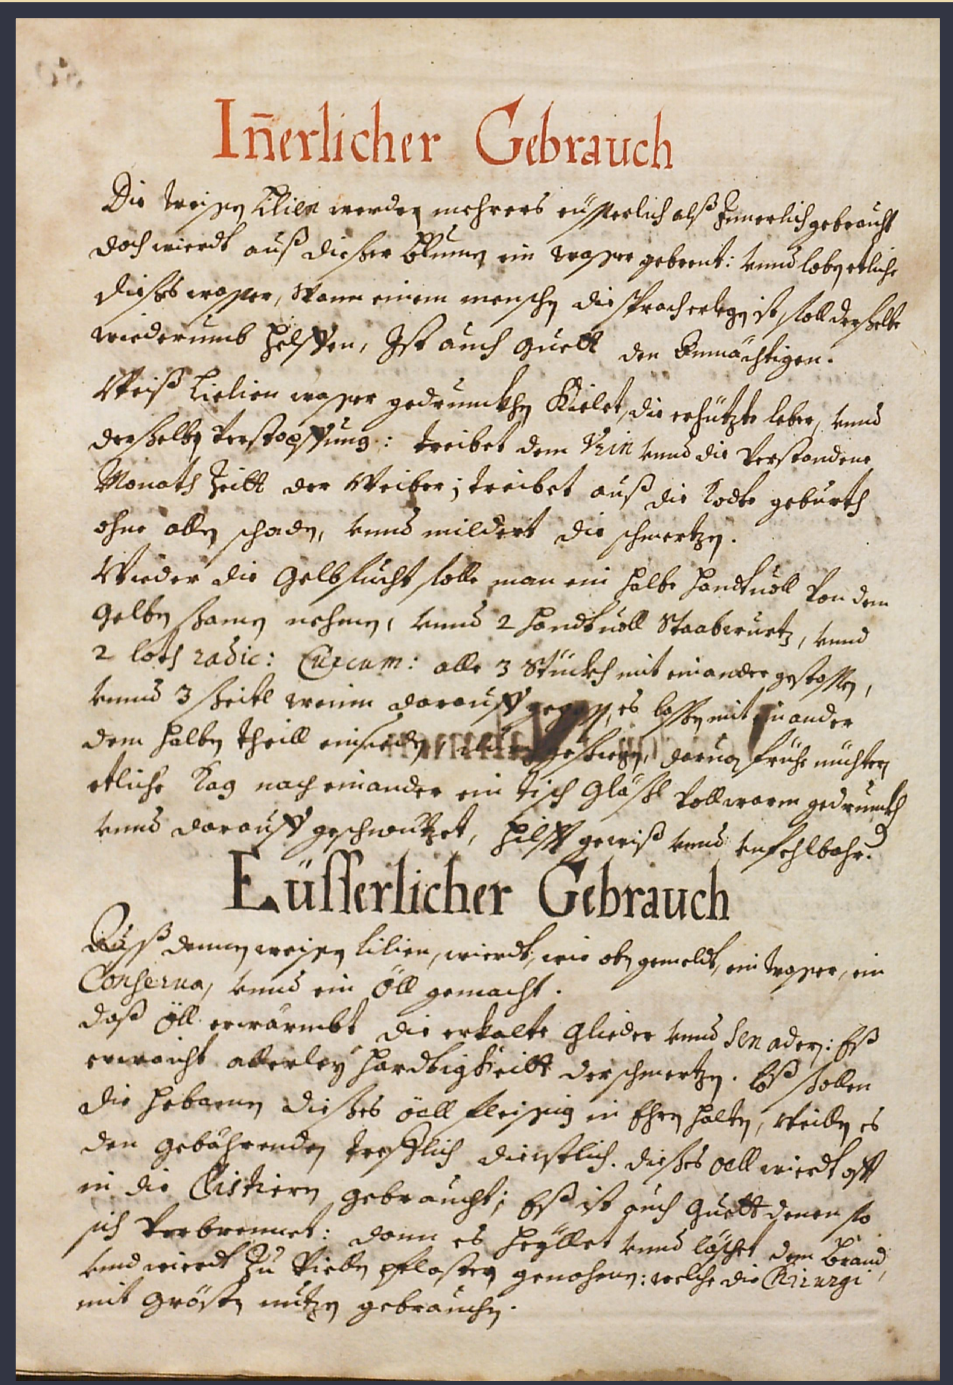 Iñerlicher Gebrauch
Die weissen Lilien werden mehrers eüsserlich alß Innerlich gebraucht
doch wierdt auß disser Blumen ein wasser gebrent: vnnd loben etliche
disses wasser, Wann einem menschen die sprach erlegen ist, soll derselbe
wiederumb helffen, Ist auch guett den Onmächtigen.
Weiß Lielien wasser gedrunckhen Kielet, die erhützte leber, vnnd
derselben verstopffung: treibet dem Vrin vnnd die verstandene
Monath Zeitt der Weiber; treibet auß die Todte geburth
ohne allen schaden, vnnd mildert die schmertzen.
Wieder die Gelbsucht solle man ein halbe handtuoll von dem
gelben samen nehmen, vnnd 2 handtuoll Staabwurtz, vnnd
2 loth radic: Curcum: alle 3 Stückh mit einander gestossen,
vnnd 3 seitl wein darauff gegossen, es lassen mit einander
dem halben theill einsieden, daruon frühe nüchtern
etliche Tag nach einander ein tisch Gläßl voll warm gedrunckh
vnnd darauff geschwitzet, hilfft gewiß vnnd vnfehlbahr.
Eüsserlicher Gebrauch
Auß dennen weissen Lilien, wierdt, wie oben gemeldt, ein wasser, ein
Conserua, vnnd ein Öll gemacht.
daß Öll erwärmbt die erkalte Glieder vnnd Sen adern: Eß
erwaicht allerley hardtigkeitt der schmertzen. Eß sollen
die hebamen disses öell fleissig in Ehren halten, weillen es
den gebährenden trefflich dienstlich. disses oell wierdt offt
in die Clistiern gebraucht; Eß ist auch guett denen so
sich verbrennet: dann es heyllet vnnd löschet dem Brand,
vnnd wierdt zu vielen pflastern genohmen: welche die Chirurgi
mit grösten nutzen gebrauchen.